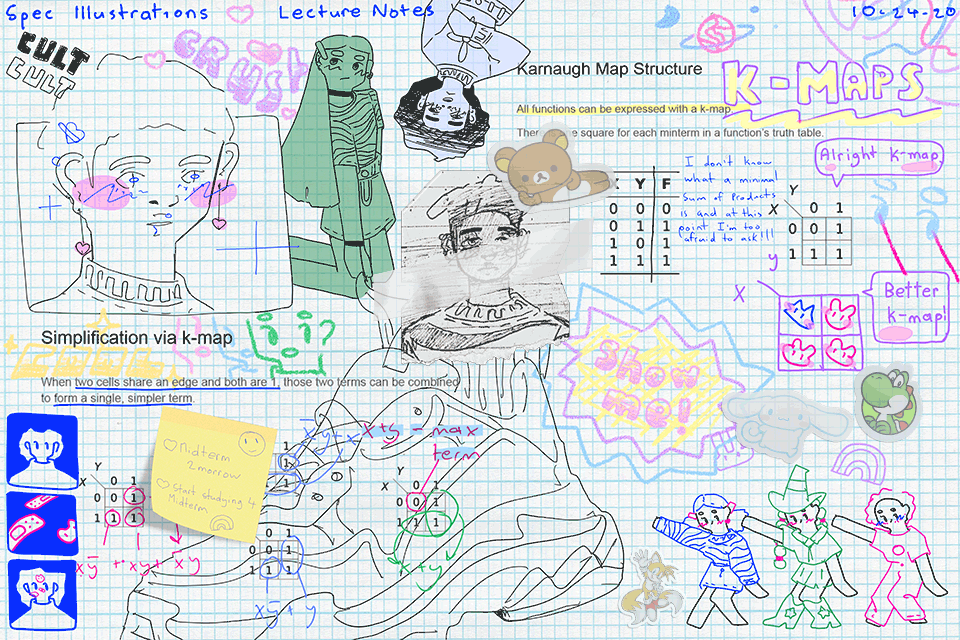 Spec Illustrations
Lecture Notes
10-24-20
CULT
CULT
CRUSH!
Karnaugh Map Structure
K-MAPS
All functions can be expressed with a k-map
square for each minterm in a function's truth table.
Y F
0 0 0
0 1 1
1 0 1
1 1 1
I don't know
what a minimal
Sum of Products
is and at this
point I'm too
afraid to ask!!!
Alright k-map
Y
X 0 1
0 0 1
y 1 1 1
X
Better
k-map!
Show
me!
Simplification via k-map
?
When two cells share an edge and both are 1, those two terms can be combined
to form a single, simpler term.
Midterm
2morrow
Start studying 4
Midterm
x+y - max
term
Y
X 0 1
0 0 1
1 1 1
x̄y + xy + xȳ
0 1
0 0 1
1 1
xy + y
Y
X 0 1
0 0 1
1 1 1
x+y